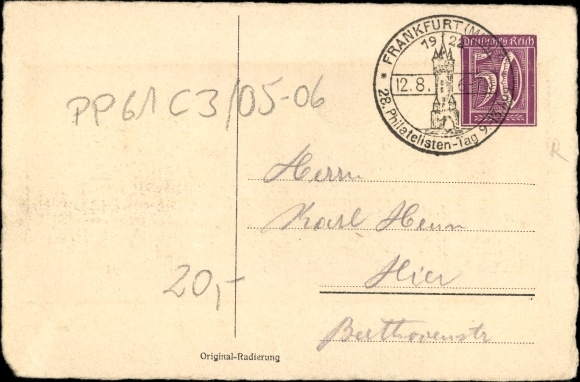 FRANKFURT (M
Deutsches Reich
1922
12.8.
50
28. Philatelisten-Tag 9.
PP61 C3/05-06
Herrn
Karl Henn
Hier
20,-
Beethovenstr
Original-Radierung
R